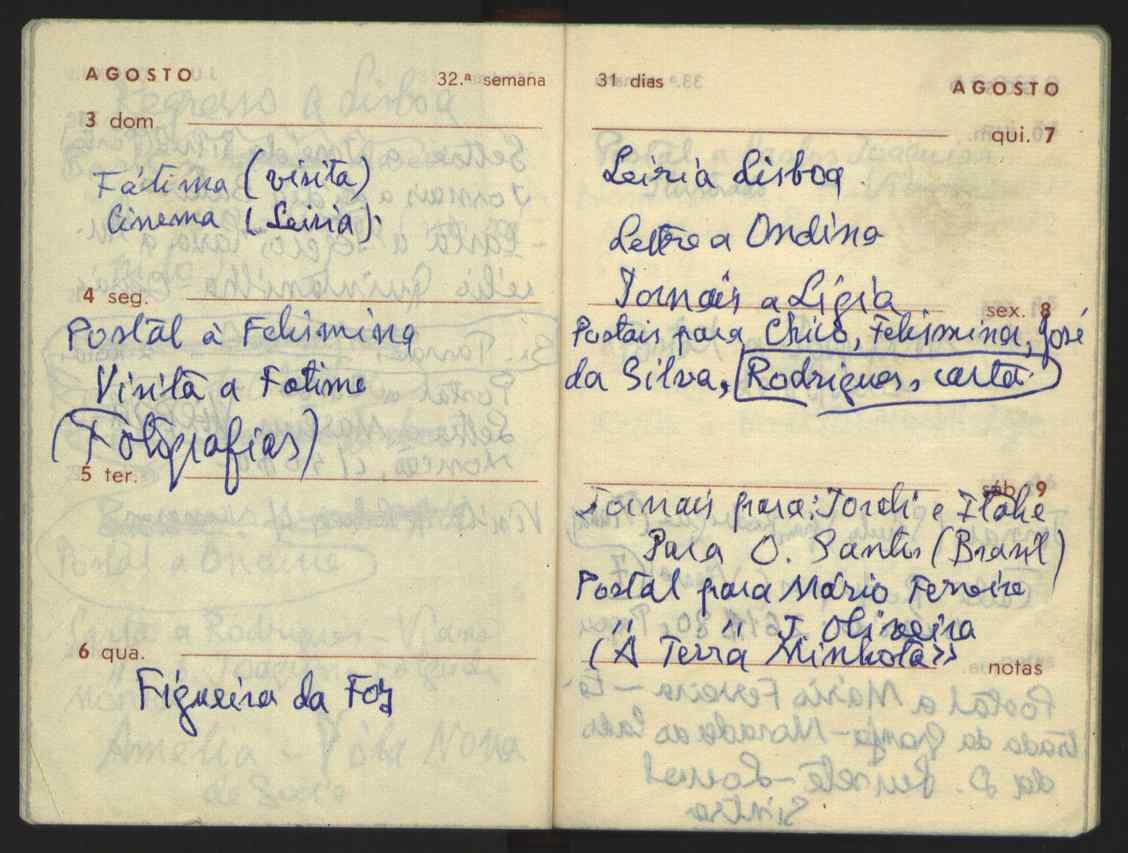 AGOSTO 32.ª semana
3 dom.
Fátima (visita)
Cinema (Leiria).
4 seg.
Postal à Felismina
Visita a Fatima
(Fotografias)
5 ter.
6 qua.
Figueira da Foz
31 dias AGOSTO
qui. 7
Leiria Lisboa
Lettre a Ondina
Jornais a Lígia
sex. 8
Postais para Chico, Felismina, José
da Silva, Rodrigues, carta
sáb. 9
Jornais para: Jordi e
Para O. Santos (Brasil)
Postal para Mário Ferreira
" " J. Oliveira
("A Terra Minhota»
notas